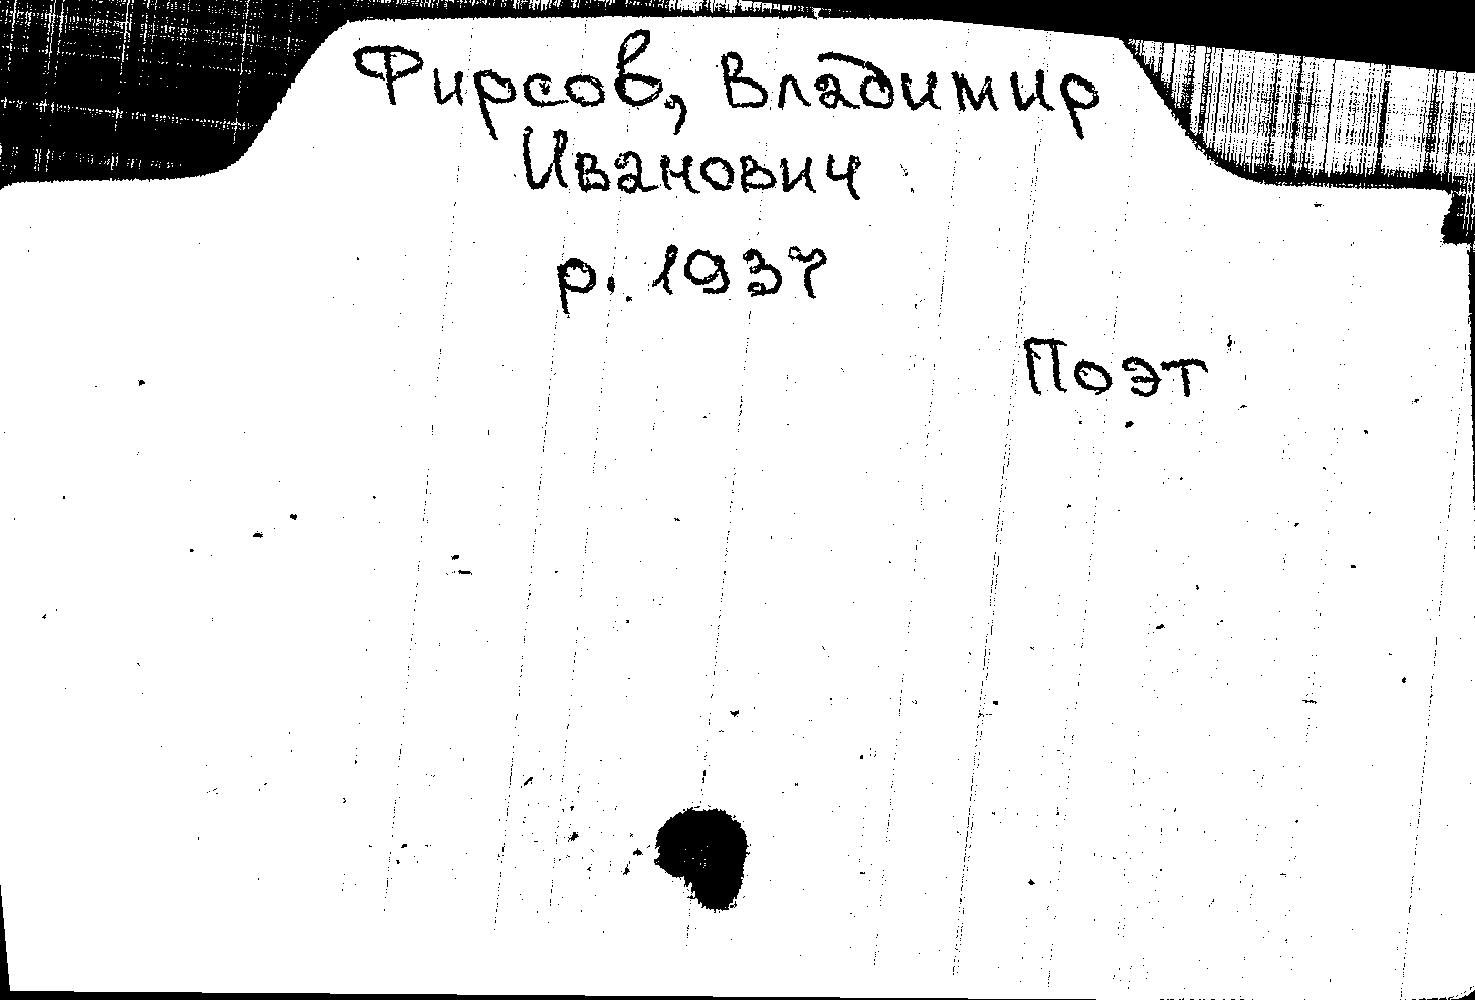 Фирсов, Владимир
Иванович
р. 1937
Поэт